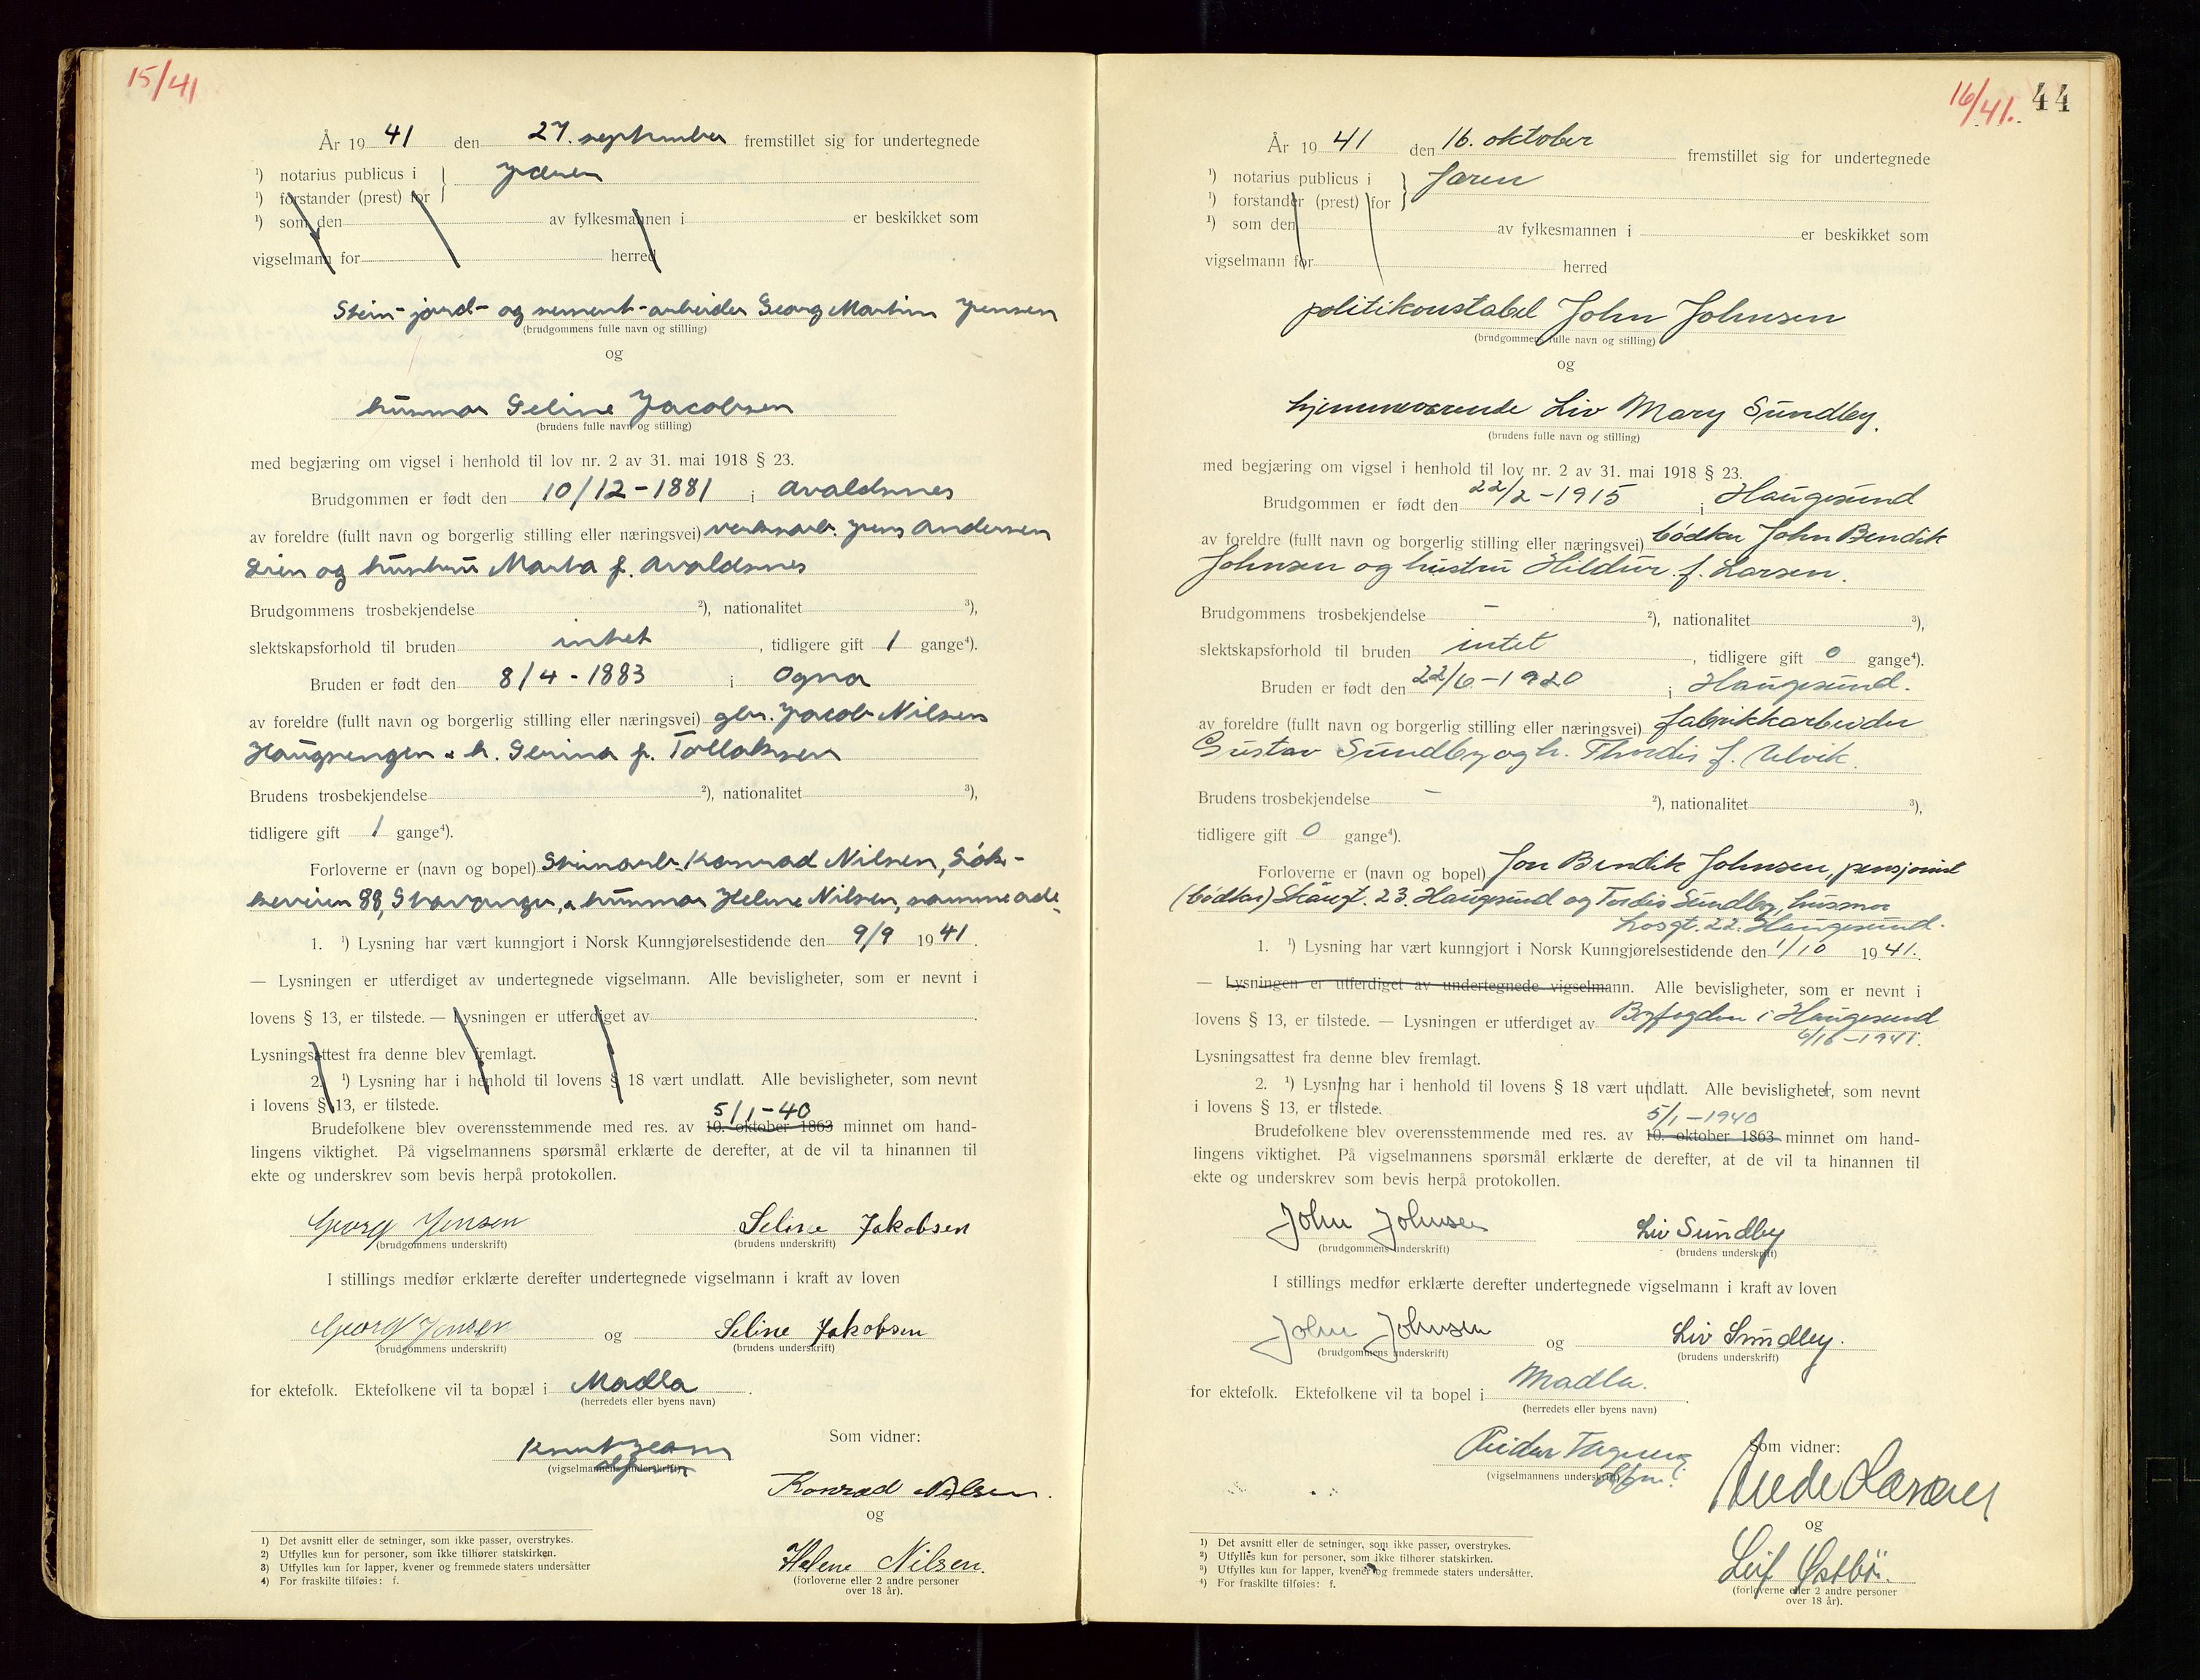 15/41
År 19 41 den 27. september fremstillet sig for undertegnede
¹) notarius publicus i } Jæren
¹) forstander (prest) for
¹) som den av fylkesmannen i er beskikket som
vigselmann for herred
Stein- jord- og sement-arbeider Georg Martin Jensen
(brudgommens fulle navn og stilling)
og
husmor Seline Jacobsen
(brudens fulle navn og stilling)
med begjæring om vigsel i henhold til lov nr. 2 av 31. mai 1918 § 23.
Brudgommen er født den 10/12-1881 i Avaldsnes
av foreldre (fullt navn og borgerlig stilling eller næringsvei) verksarb. Jens Andersen
Lien og hustru Marta f. Avaldsnes
Brudgommens trosbekjendelse ²), nationalitet ³),
slektskapsforhold til bruden intet , tidligere gift 1 gange⁴).
Bruden er født den 8/4-1883 i Ogna
av foreldre (fullt navn og borgerlig stilling eller næringsvei) gbr. Jacob Nilsen
Haugsengen & h. Serina f. Tollaksen
Brudens trosbekjendelse ²), nationalitet ³),
tidligere gift 1 gange⁴).
Forloverne er (navn og bopel) Steinarb. Konrad Nilsen,
88, Stavanger, & husmor Helene Nilsen, samme adr.
1. ¹) Lysning har vært kunngjort i Norsk Kunngjørelsestidende den 9/9 1941.
— Lysningen er utferdiget av undertegnede vigselmann. Alle bevisligheter, som er nevnt i
lovens § 13, er tilstede. — Lysningen er utferdiget av .
Lysningsattest fra denne blev fremlagt.
2. ¹) Lysning har i henhold til lovens § 18 vært undlatt. Alle bevisligheter, som nevnt
i lovens § 13, er tilstede.
5/1-40
Brudefolkene blev overensstemmende med res. av 10. oktober 1863 minnet om hand-
lingens viktighet. På vigselmannens spørsmål erklærte de derefter, at de vil ta hinannen til
ekte og underskrev som bevis herpå protokollen.
Georg Jensen Seline Jakobsen
(brudgommens underskrift) (brudens underskrift)
I stillings medfør erklærte derefter undertegnede vigselmann i kraft av loven
Georg Jensen og Seline Jakobsen
(brudgommens underskrift) (brudens underskrift)
for ektefolk. Ektefolkene vil ta bopæl i Madla .
(herredets eller byens navn)
Som vidner:
Knut
(vigselmannens underskrift)
Konrad Nilsen.
og
Helene Nilsen.
(forloverne eller 2 andre personer
over 18 år).
1) Det avsnitt eller de setninger, som ikke passer, overstrykes.
2) Utfylles kun for personer, som ikke tilhører statskirken.
3) Utfylles kun for lapper, kvener og fremmede staters undersåtter
4) For fraskilte tilføies: f.
16/41. 44
År 19 41 den 16. oktober fremstillet sig for undertegnede
¹) notarius publicus i } Jæren
¹) forstander (prest) for
¹) som den av fylkesmannen i er beskikket som
vigselmann for herred
politikonstabel John Johnsen
(brudgommens fulle navn og stilling)
og
hjemmeværende Liv Mary Sundby.
(brudens fulle navn og stilling)
med begjæring om vigsel i henhold til lov nr. 2 av 31. mai 1918 § 23.
Brudgommen er født den 22/2-1915 i Haugesund
av foreldre (fullt navn og borgerlig stilling eller næringsvei) bødker John Bendik
Johnsen og hustru Hildur f. Larsen.
Brudgommens trosbekjendelse - ²), nationalitet ³),
slektskapsforhold til bruden intet , tidligere gift 0 gange⁴).
Bruden er født den 22/6-1920 i Haugesund.
av foreldre (fullt navn og borgerlig stilling eller næringsvei) fabrikkarbeider
Gustav Sundby og h. Thordis f. Ulvik.
Brudens trosbekjendelse - ²), nationalitet ³),
tidligere gift 0 gange⁴).
Forloverne er (navn og bopel) Jon Bendik Johnsen, pensjonist
(bødker) Skåregt. 23. Haugesund og Tordis Sundby, husmor
Losgt. 22. Haugesund.
1. ¹) Lysning har vært kunngjort i Norsk Kunngjørelsestidende den 1/10 1941.
— Lysningen er utferdiget av undertegnede vigselmann. Alle bevisligheter, som er nevnt i
lovens § 13, er tilstede. — Lysningen er utferdiget av Byfogden i Haugesund
6/10-1941.
Lysningsattest fra denne blev fremlagt.
2. ¹) Lysning har i henhold til lovens § 18 vært undlatt. Alle bevisligheter, som nevnt
i lovens § 13, er tilstede.
5/1-1940
Brudefolkene blev overensstemmende med res. av 10. oktober 1863 minnet om hand-
lingens viktighet. På vigselmannens spørsmål erklærte de derefter, at de vil ta hinannen til
ekte og underskrev som bevis herpå protokollen.
John Johnsen Liv Sundby
(brudgommens underskrift) (brudens underskrift)
I stillings medfør erklærte derefter undertegnede vigselmann i kraft av loven
John Johnsen og Liv Sundby.
(brudgommens underskrift) (brudens underskrift)
for ektefolk. Ektefolkene vil ta bopel i Madla.
(herredets eller byens navn)
Som vidner:
Reidar
(vigselmannens underskrift)
og
Leif Østbø.
(forloverne eller 2 andre personer
over 18 år).
1) Det avsnitt eller de setninger, som ikke passer, overstrykes.
2) Utfylles kun for personer, som ikke tilhører statskirken.
3) Utfylles kun for lapper, kvener og fremmede staters undersåtter.
4) For fraskilte tilføies: f.